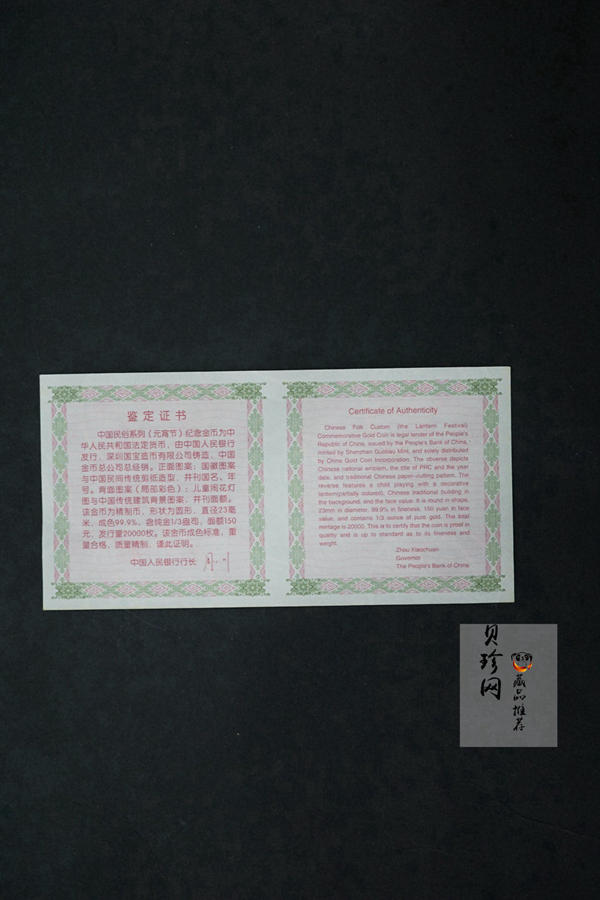 鉴定证书
中国民俗系列（元宵节）纪念金币为中
华人民共和国法定货币，由中国人民银行
发行，深圳国宝造币有限公司铸造，中国
金币总公司总经销。正面图案：国徽图案
与中国民间传统剪纸造型，并刊国名、年
号。背面图案（局部彩色）：儿童闹花灯
图与中国传统建筑背景图案，并刊面额。
该金币为精制币，形状为圆形，直径23毫
米，成色99.9%，含纯金1/3盎司，面额150
元，发行量20000枚。该金币成色标准，重
量合格，质量精制，谨此证明。
中国人民银行行长
Certificate of Authenticity
Chinese Folk Custom (the Lantern Festival)
Commemorative Gold Coin is legal tender of the People's
Republic of China, issued by the People's Bank of China,
minted by Shenzhen Guobao Mint, and solely distributed
by China Gold Coin Incorporation. The obverse depicts
Chinese national emblem, the title of PRC and the year
date, and traditional Chinese paper-cutting pattern. The
reverse features a child playing with a decorative
lantern(partially colored), Chinese traditional building in
the background, and the face value. It is round in shape,
23mm in diameter, 99.9% in fineness, 150 yuan in face
value, and contains 1/3 ounce of pure gold. The total
mintage is 20000. This is to certify that the coin is proof in
quality and is up to standard as to its fineness and
weight.
Zhou Xiaochuan
Governor
The People's Bank of China
贝珍网
藏品推荐